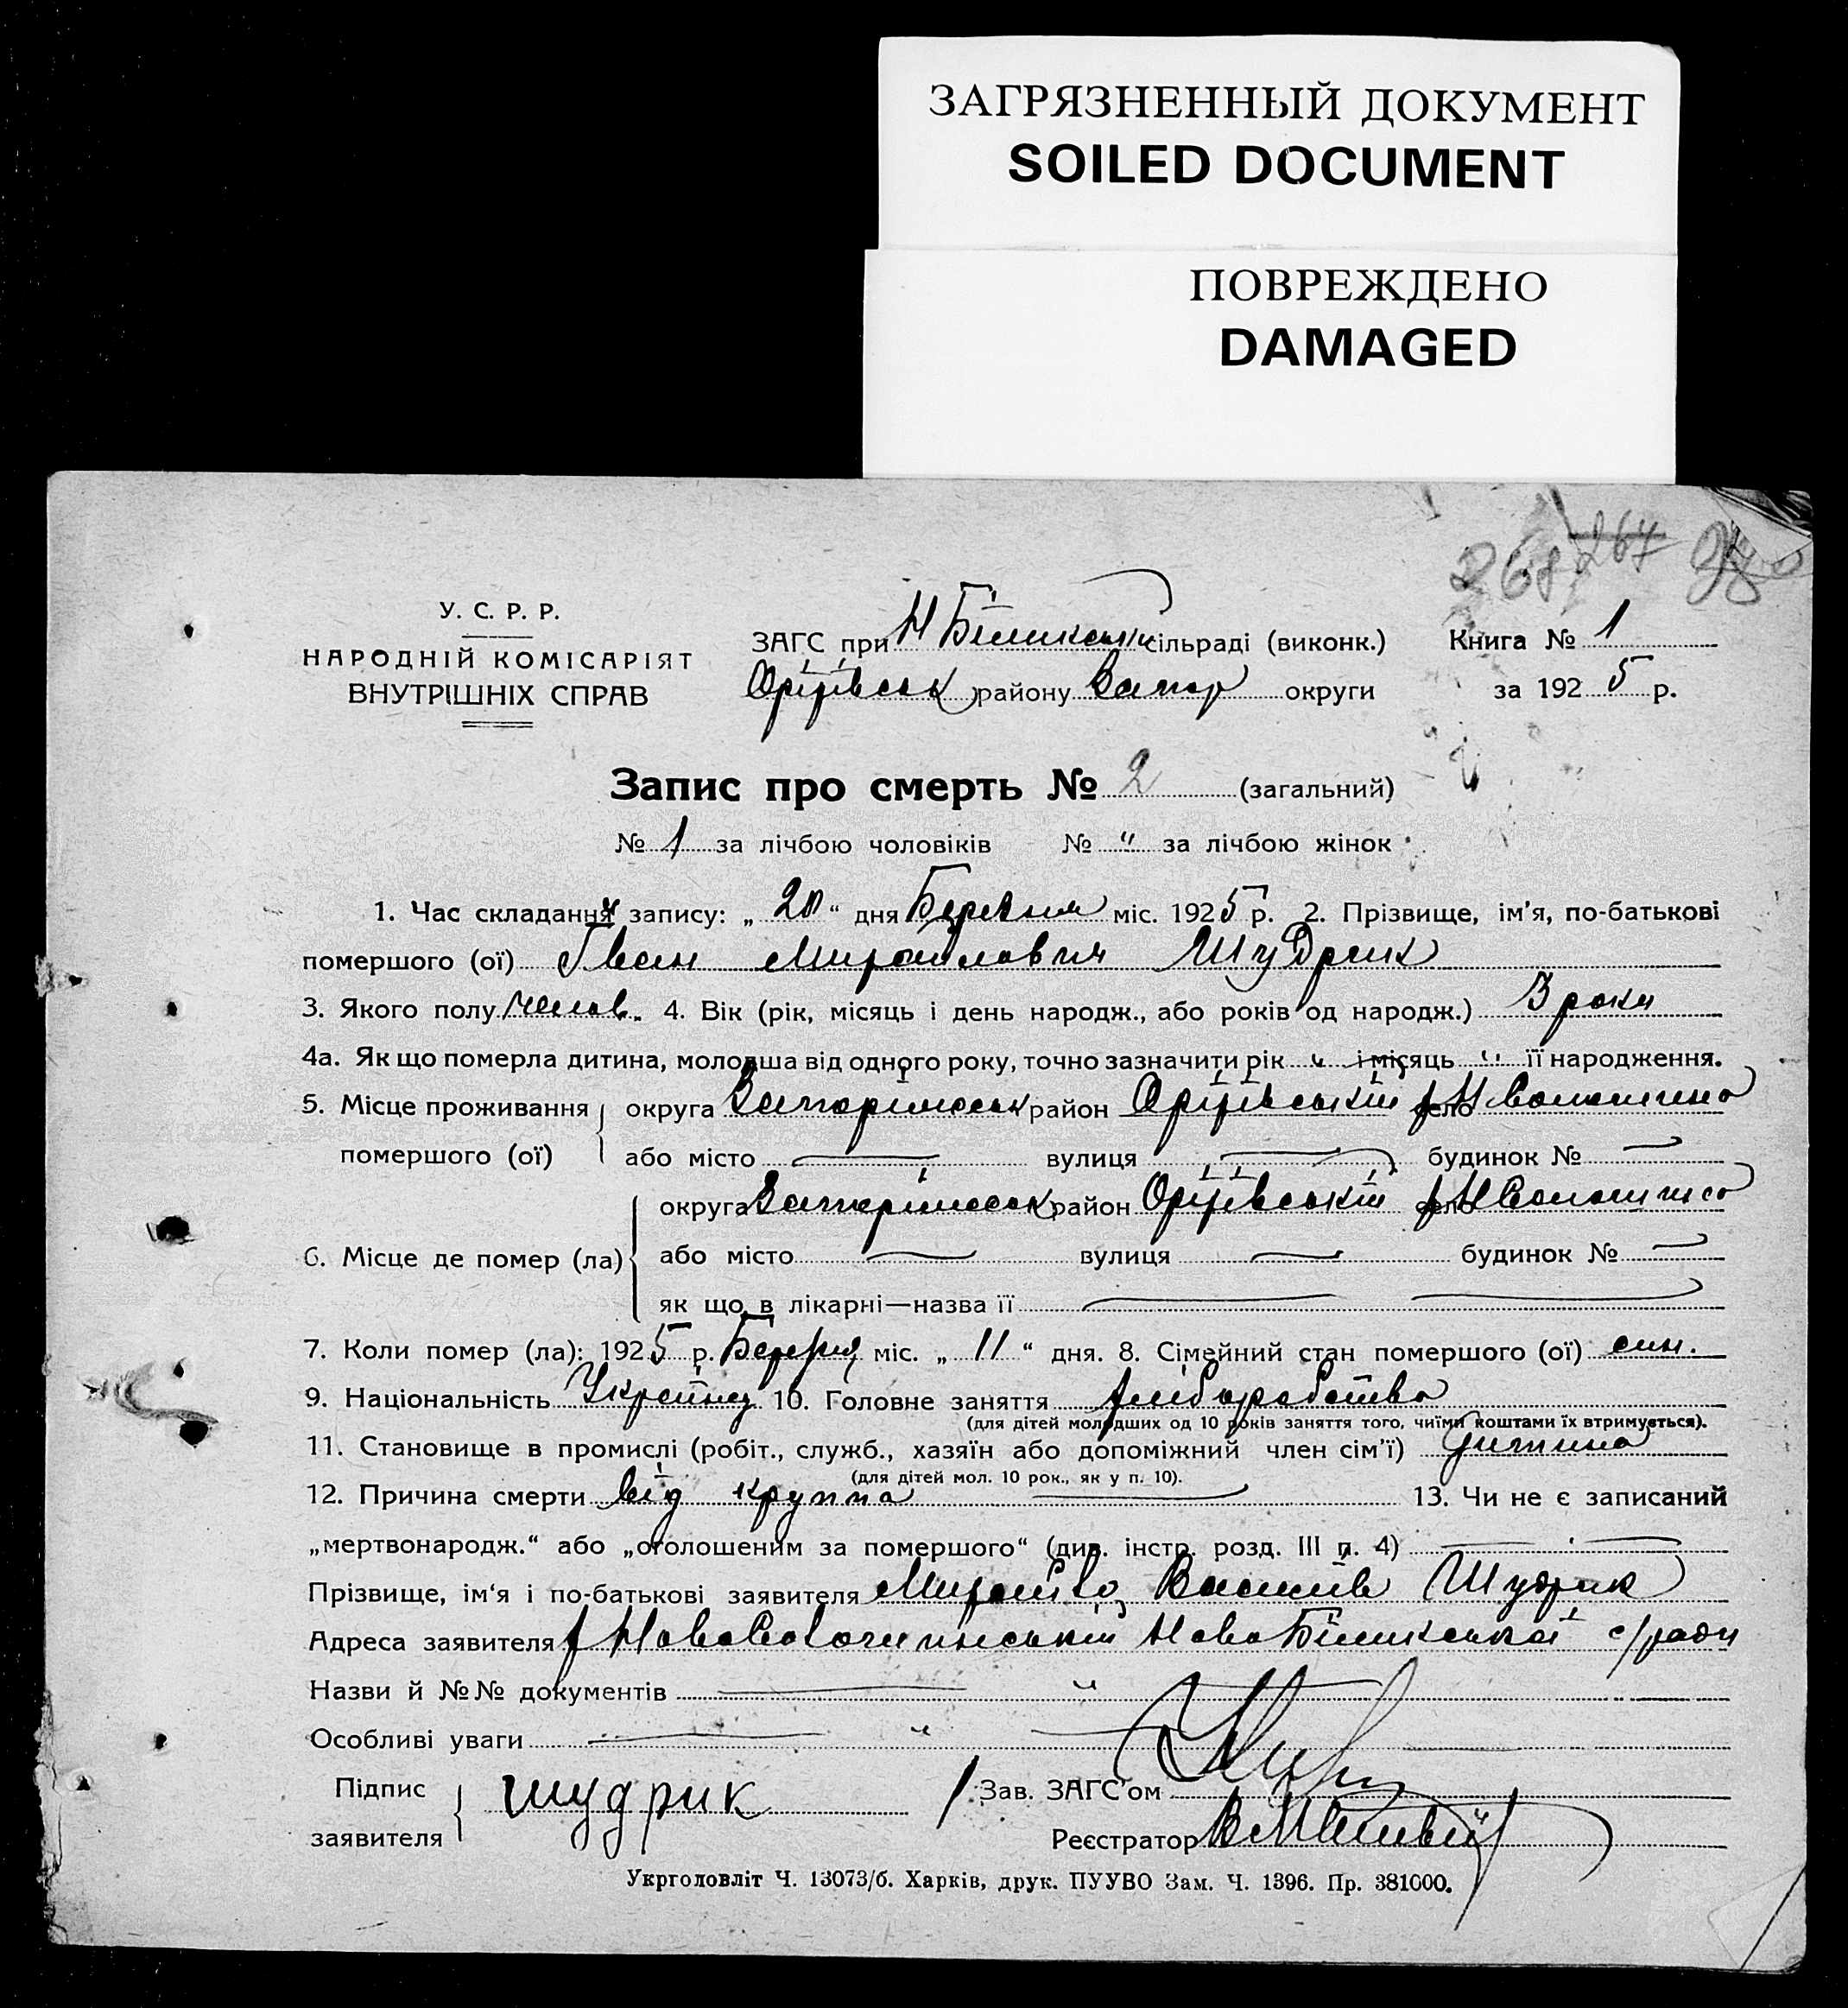 ЗАГРЯЗНЕННЫЙ ДОКУМЕНТ
SOILED DOCUMENT
ПОВРЕЖДЕНО
DAMAGED
268 267
У. С. Р. Р.
НАРОДНІЙ КОМІСАРІЯТ
ВНУТРІШНІХ СПРАВ
ЗАГС при Н сільраді (виконк.) Книга № 1
району Запор округи за 1925 р.
Запис про смерть № 2 (загальний)
№ 1 за лічбою чоловіків № " за лічбою жінок
1. Час складання запису: „ 20 “ дня Березня міс. 1925 р. 2. Прізвище, ім'я, по-батькові
помершого (ої) Іван Шудрик
3. Якого полу чолов. 4. Вік (рік, місяць і день народж., або років од народж.) 3 роки
4а. Як що померла дитина, молодша від одного року, точно зазначити рік " і місяць " її народження.
5. Місце проживання помершого (ої) округа район село
або місто — вулиця — будинок № —
6. Місце де помер (ла) округа район село
або місто — вулиця — будинок № —
як що в лікарні—назва її —
7. Коли помер (ла): 1925 р. міс. „ 11 “ дня. 8. Сімейний стан помершого (ої) син.
9. Національність 10. Головне заняття
(для дітей молодших од 10 років заняття того, чиїми коштами їх втримується).
11. Становище в промислі (робіт., служб., хазяїн або допоміжний член сім'ї) дитина
(для дітей мол. 10 рок., як у п. 10).
12. Причина смерти від круппа — 13. Чи не є записаний
„мертвонародж.“ або „оголошеним за помершого“ (див. інстр. розд. III п. 4) —
Прізвище, ім'я і по-батькові заявителя Шудрик
Адреса заявителя с/ради
Назви й №№ документів — "
Особливі уваги — " —
Підпис заявителя шудрик Зав. ЗАГС'ом
Реєстратор
Укрголовліт Ч. 13073/б. Харків, друк. ПУУВО Зам. Ч. 1396. Пр. 381000.